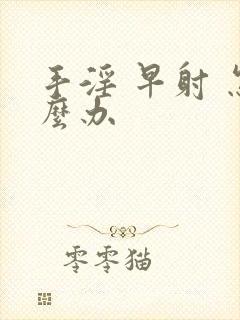 手淫 早射 怎
麼办
零零猫